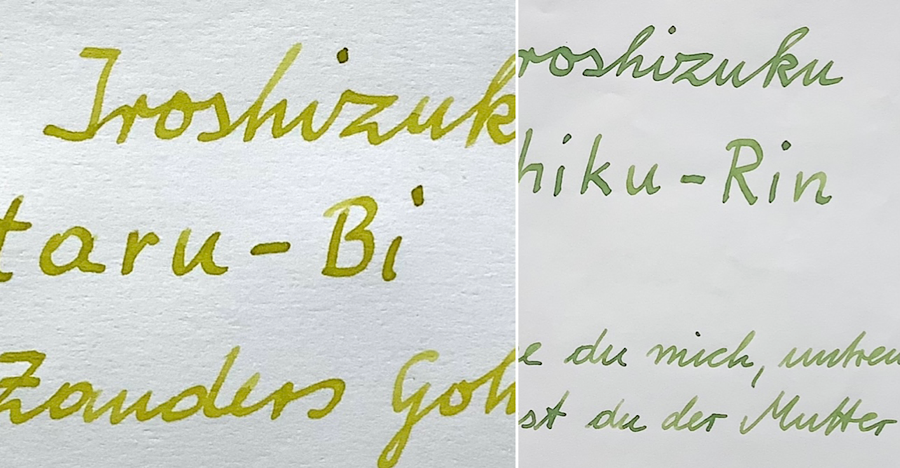 Iroshizuk
taru-Bi
Zanders Goh
roshizuku
hiku-Rin
e du mich, untreu
st du der Mutter